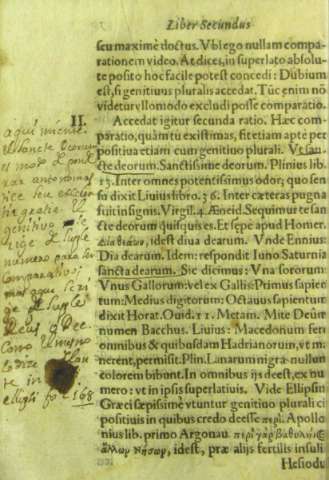 Liber Secundus
seu maximè doctus. Vbi ego nullam compa-
rationem video. At dices, in superlato absolu-
te posito hoc facile potest concedi: Dubium
est, si genitiuus pluralis accedat. Tũc enim nõ
videtur vllo modo excludi posse comparatio.
II.
Accedat igitur secunda ratio. Hæc com-
paratio, quàm tu existimas, fit etiam apte per
positiua etiam cum genitiuo plurali. Vt san-
cte deorum. Sanctissime deorum. Plinius lib.
13. Inter omnes potentissimus odor; quo sen-
su dixit Liuius libro. 36. Inter cæteras pugna
fuit insignis. Virgil. 4. Æneid. Sequimur te san
cte deorum quisquis es. Et sępe apud Homer.
idest diua dearum. Vnde Ennius
Dia dearum. Idem: respondit Iuno Saturnia
sancta dearum. Sic dicimus: Vna sororum:
Vnus Gallorum: vel ex Gallis: Primus sapien
tum: Medius digitorum: Octauus sapientum
dixit Horat. Ouid. 11. Metam. Mite Deûm
numen Bacchus. Liuius: Macedonum ferè
omnibus & quibusdam Hadrianorum, vt ma
nerent, permisit. Plin. Lanarum nigræ nullum
colorem bibunt. In omnibus ijs deest, ex nu
mero: vt in ipsis superlatiuis. Vide Ellipsin
Græci sæpissimè vtuntur genitiuo plurali ci
positiuis in quibus credo deesse περί. Apollo
nius lib. primo Argonau. περὶ γὰρ βαθυλήιος
ἄλλων νήσων, idest, præ alijs fertilis insulis
Hesiodu
aqui miente
genitivo
numero
comparativo
mas aqui
Deus
como el mismo
lo dize
en la
ellipsi fo 168